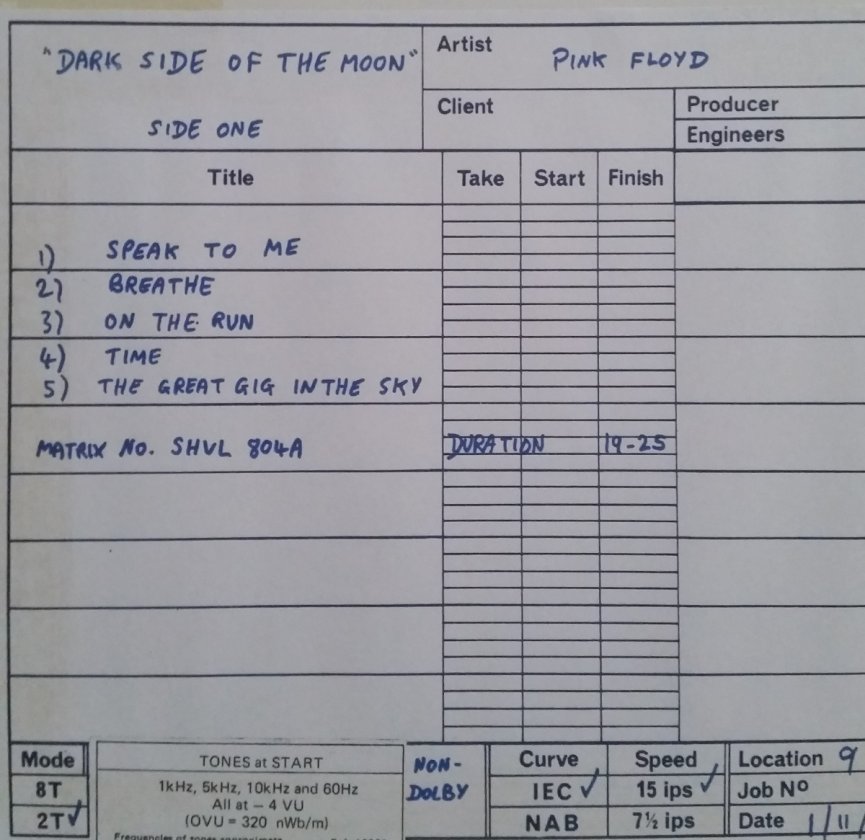 "DARK SIDE OF THE MOON"
SIDE ONE
Artist PINK FLOYD
Client
Producer
Engineers
Title Take Start Finish
1) SPEAK TO ME
2) BREATHE
3) ON THE RUN
4) TIME
5) THE GREAT GIG IN THE SKY
MATRIX NO. SHVL 804A DURATION 19-25
Mode
8T
2T ✓
TONES at START
1kHz, 5kHz, 10kHz and 60Hz
All at – 4 VU
(OVU = 320 nWb/m)
NON-
DOLBY
Curve
IEC ✓
NAB
Speed
15 ips ✓
7½ ips
Location 9
Job Nº
Date 1/11